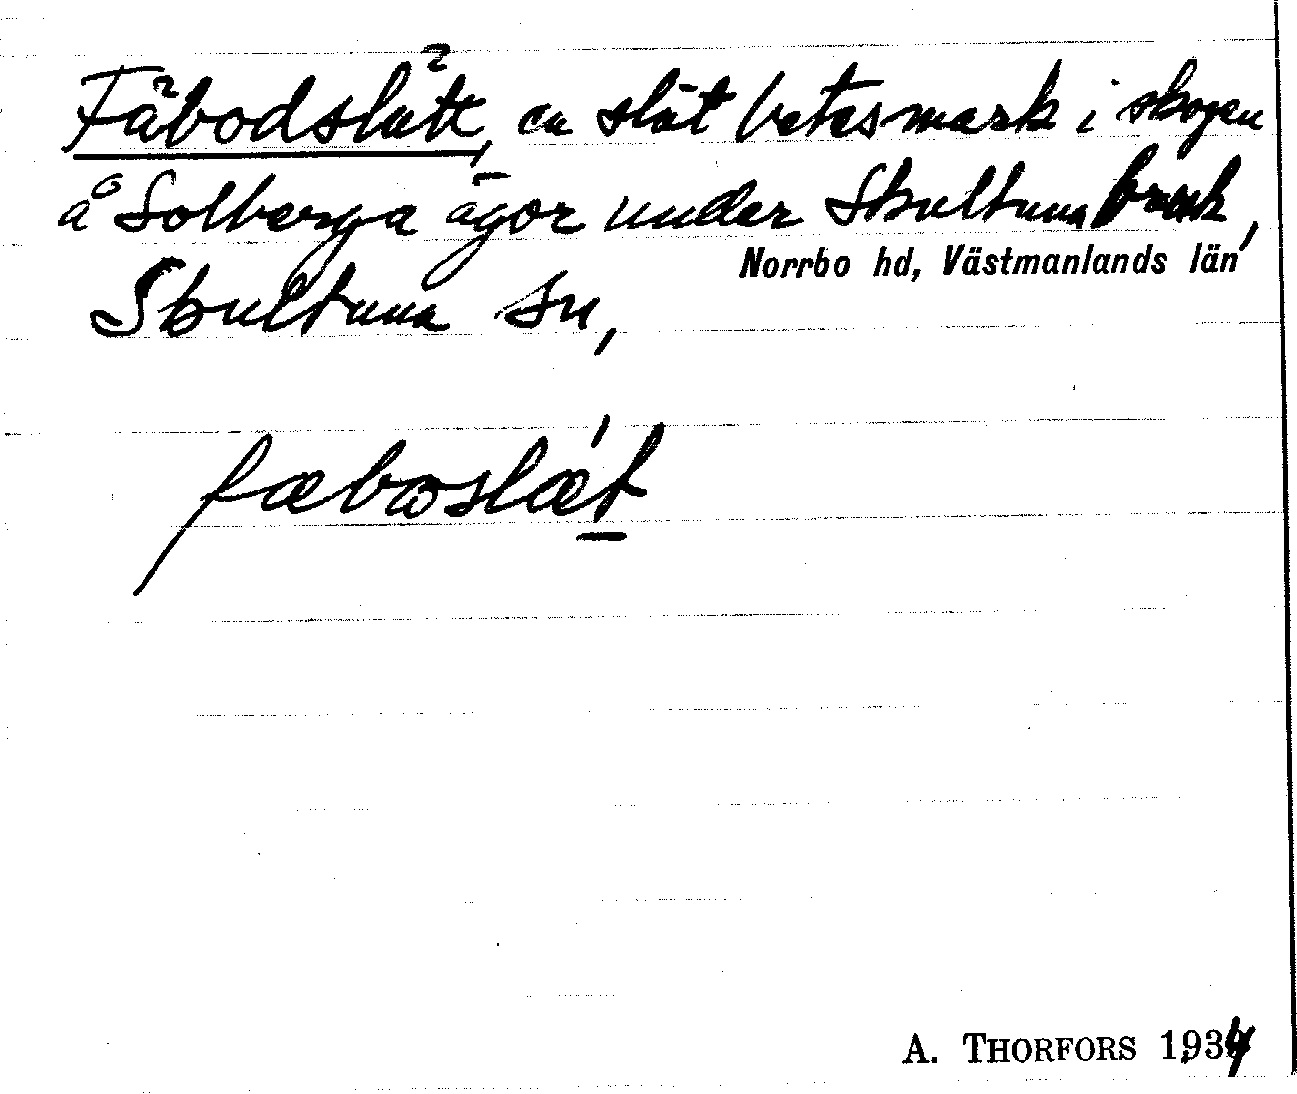 Fäbodslätt, en slät betesmark i skogen
å Solberga ägor under Skultuna bruk,
Norrbo hd, Västmanlands län
Skultuna sn,
fæboslæt
A. THORFORS 1934